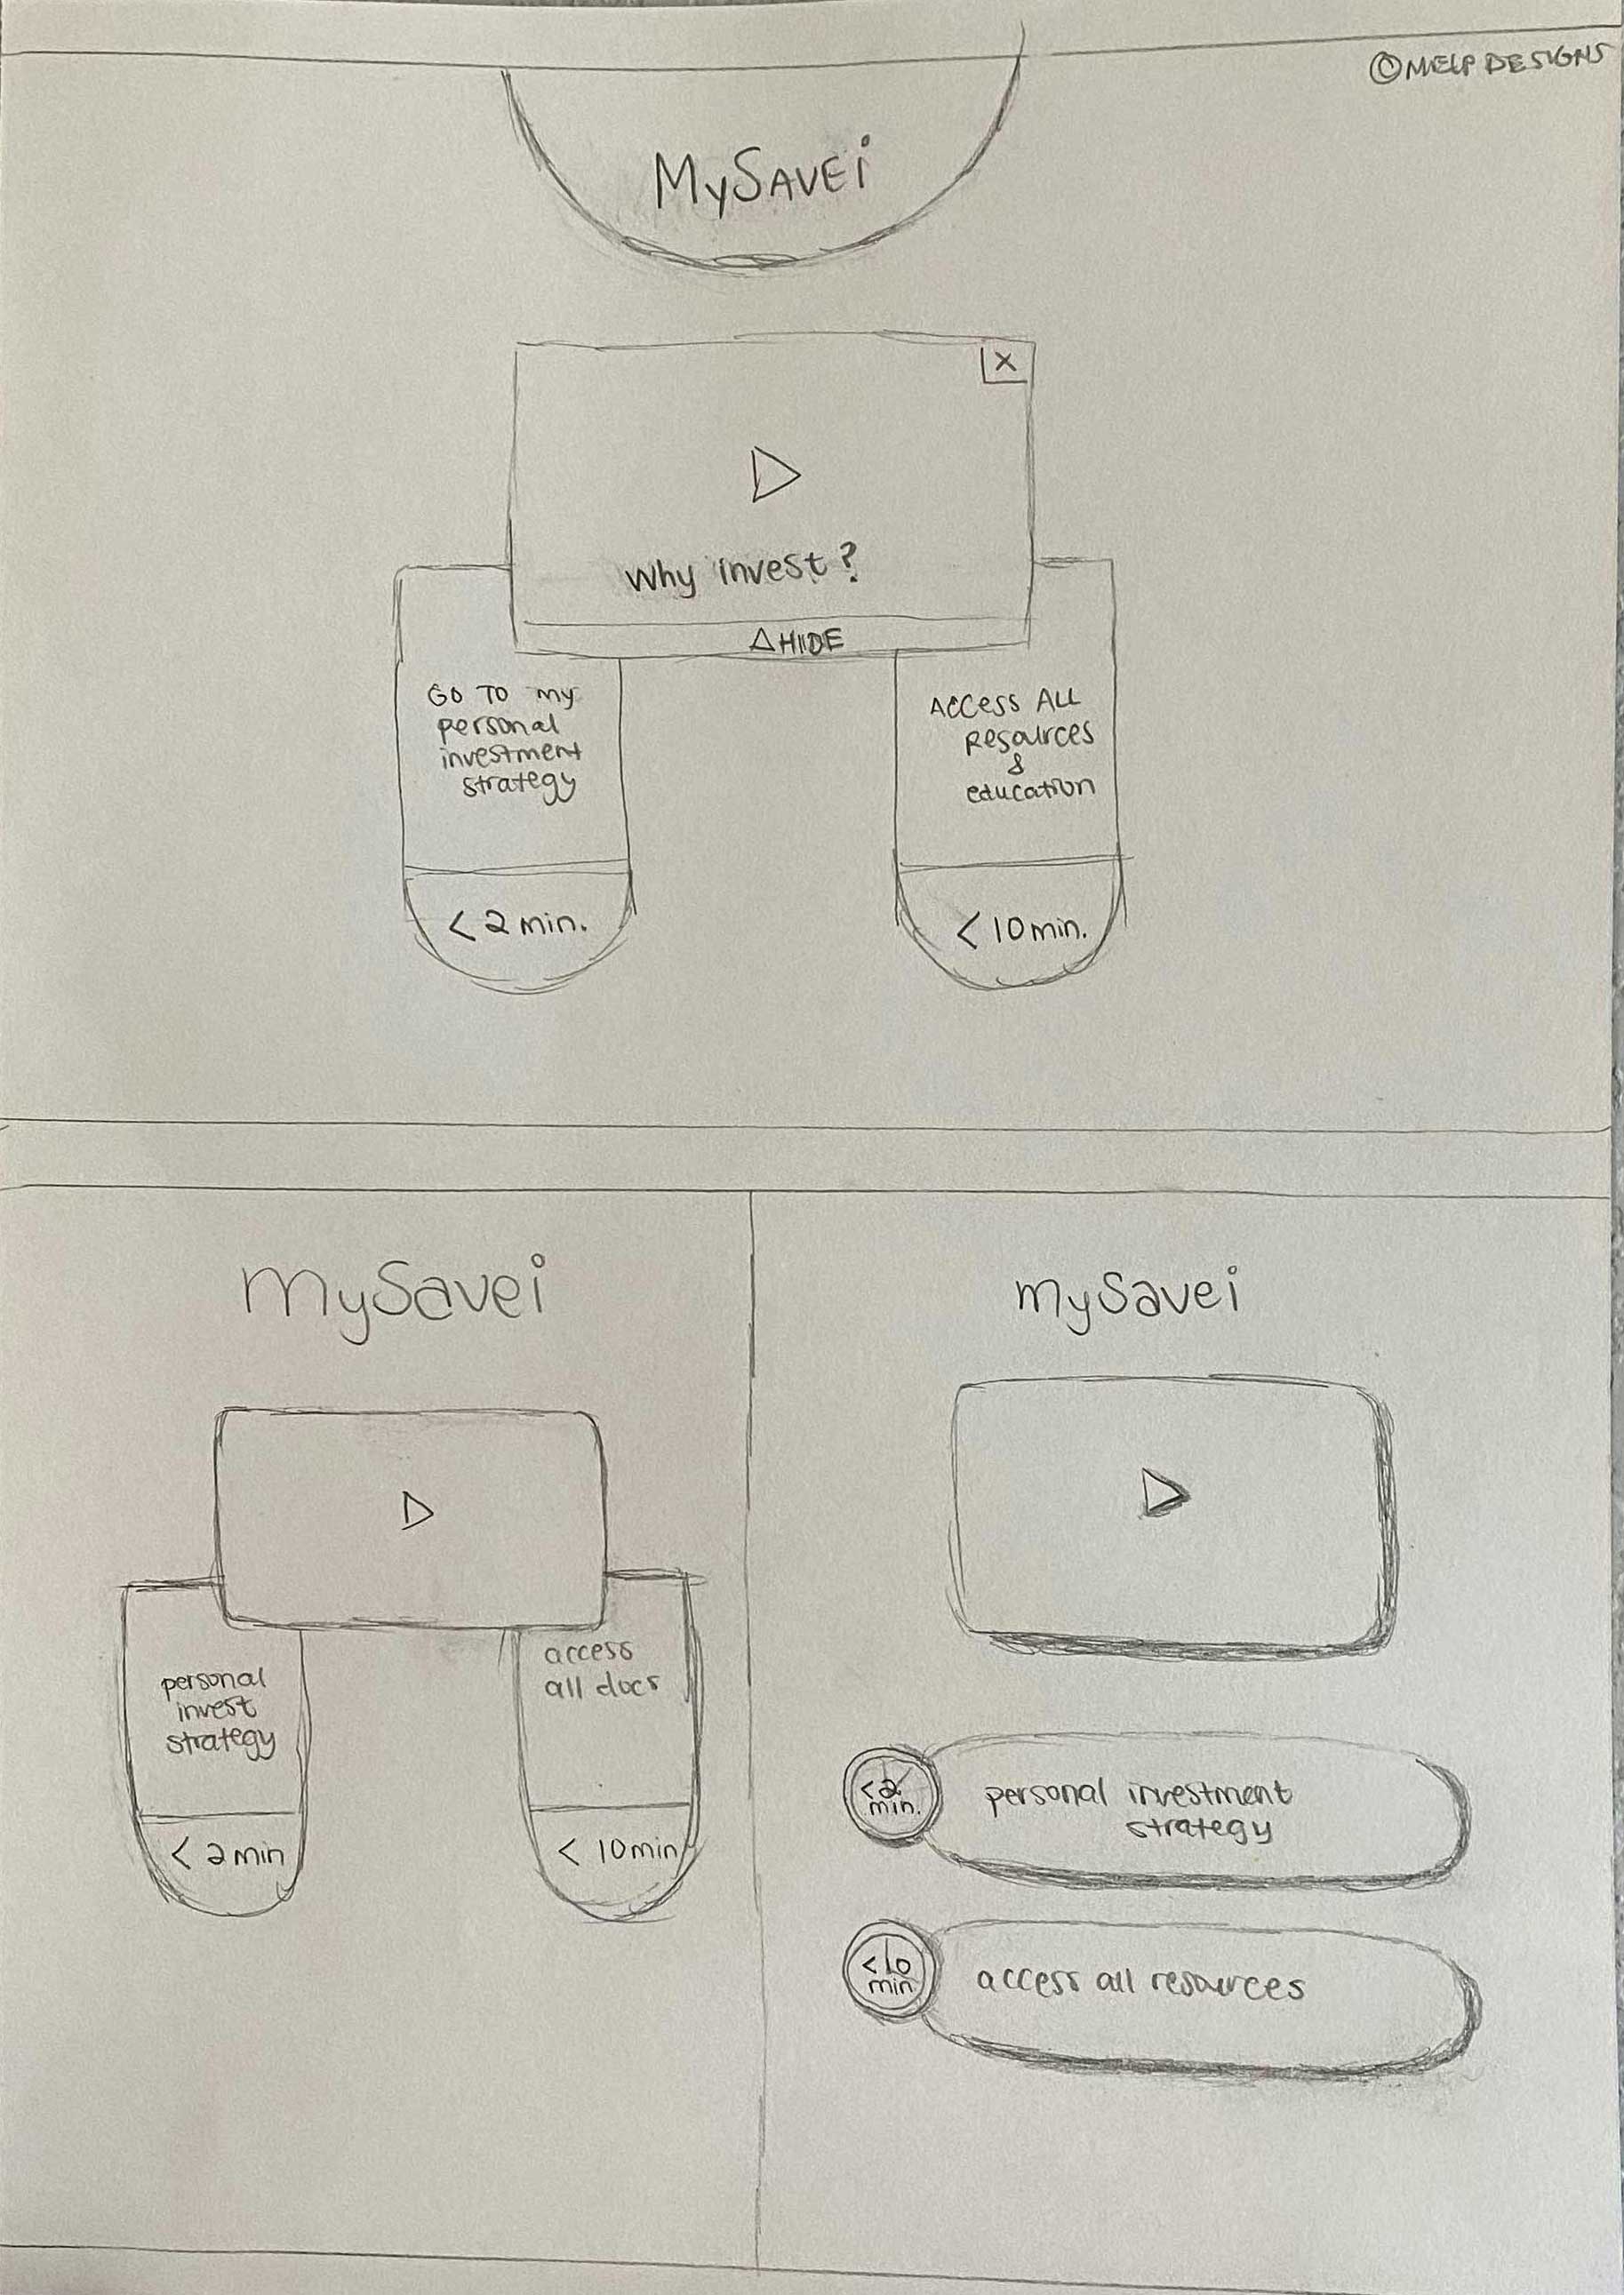 ©MELP DESIGNS
MySAVEi
X
Why invest?
△HIDE
GO TO my
personal
investment
strategy
ACCESS ALL
Resources
&
education
<2 min.
<10 min.
mySavei
personal
invest
strategy
access
all docs
<2 min
<10 min
mySavei
<2
min.
personal investment
strategy
<10
min
access all resources